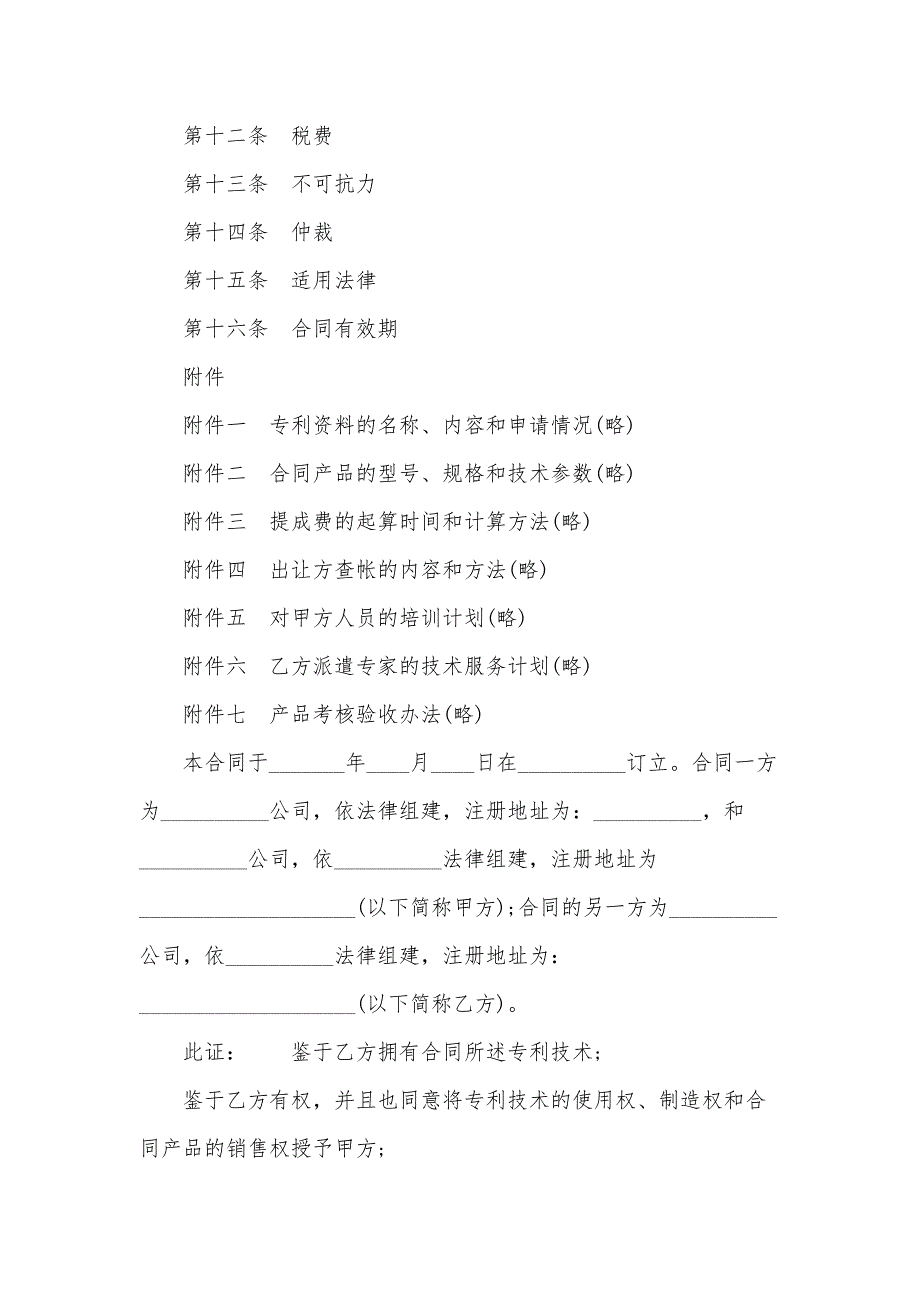 第十二条　税费
第十三条　不可抗力
第十四条　仲裁
第十五条　适用法律
第十六条　合同有效期
附件
附件一　专利资料的名称、内容和申请情况(略)
附件二　合同产品的型号、规格和技术参数(略)
附件三　提成费的起算时间和计算方法(略)
附件四　出让方查帐的内容和方法(略)
附件五　对甲方人员的培训计划(略)
附件六　乙方派遣专家的技术服务计划(略)
附件七　产品考核验收办法(略)
本合同于_______年____月____日在__________订立。合同一方
为__________公司，依法律组建，注册地址为：__________，和
__________公司，依__________法律组建，注册地址为
____________________(以下简称甲方);合同的另一方为__________
公司，依__________法律组建，注册地址为：
____________________(以下简称乙方)。
此证：　　鉴于乙方拥有合同所述专利技术;
鉴于乙方有权，并且也同意将专利技术的使用权、制造权和合
同产品的销售权授予甲方;